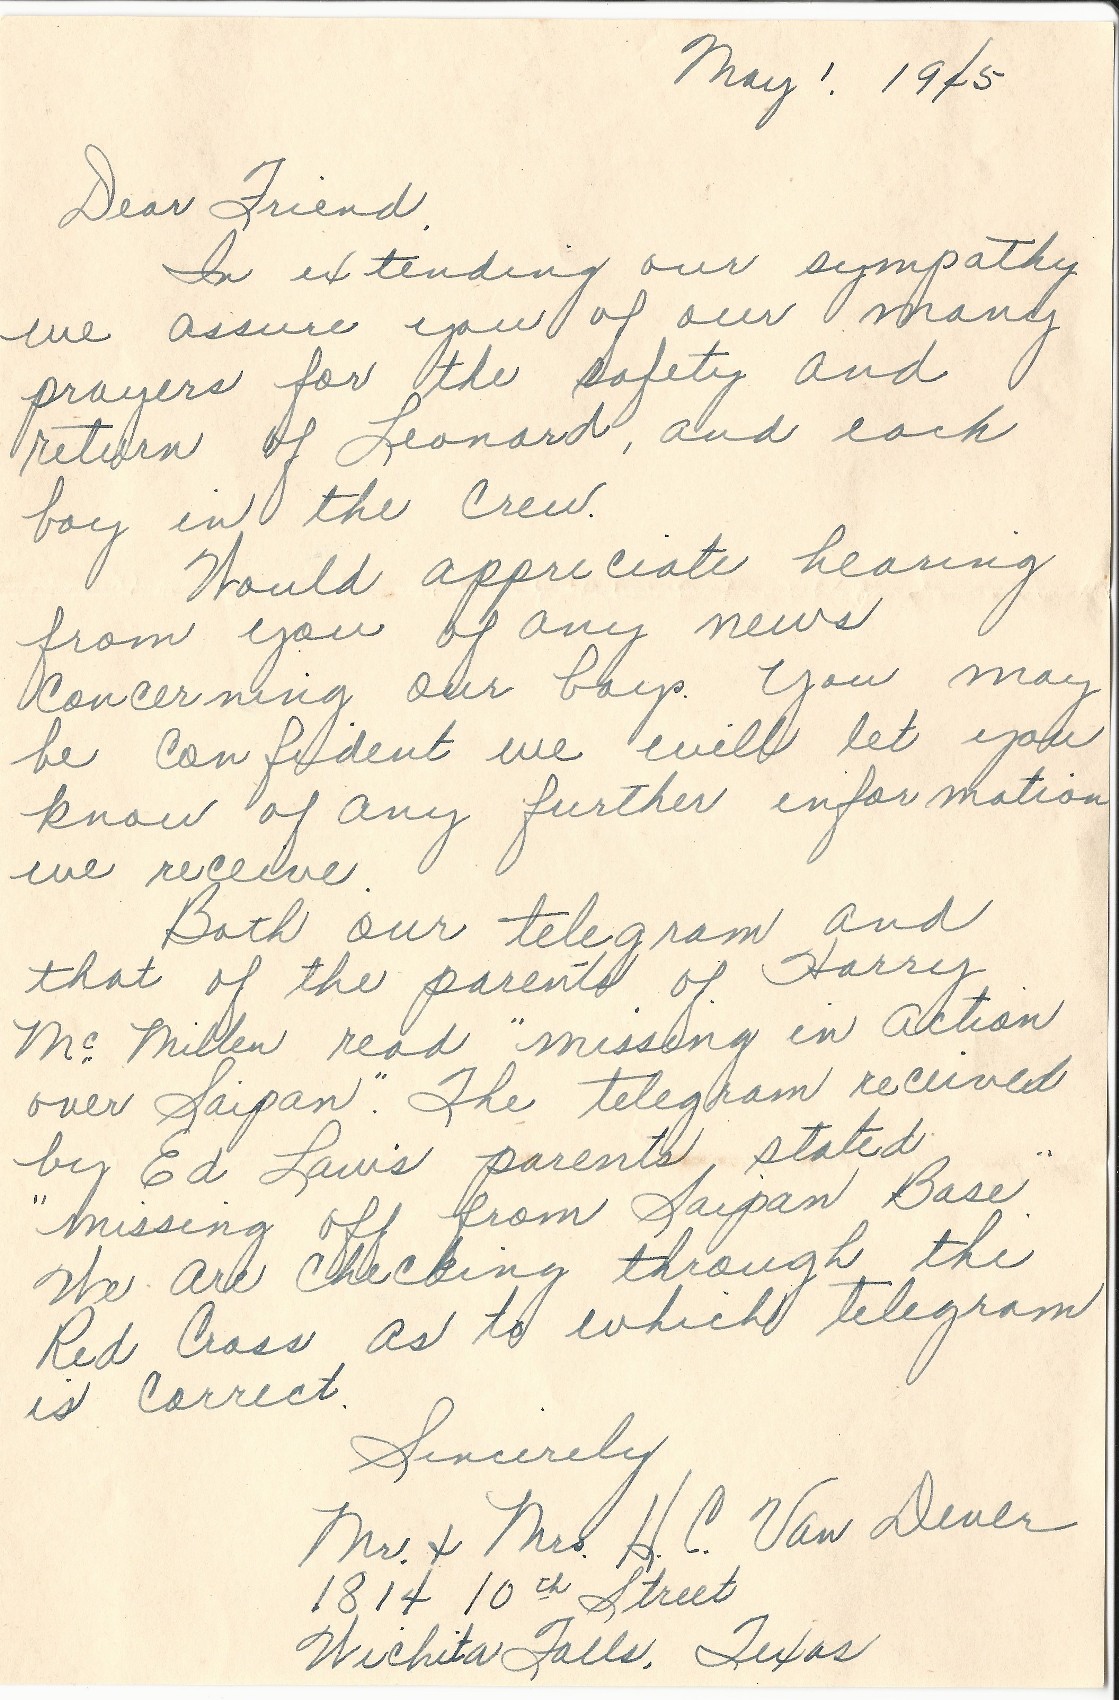 May 1. 1945
Dear Friend,
In extending our sympathy
we assure you of our many
prayers for the safety and
return of Leonard, and each
boy in the crew.
Would appreciate hearing
from you of any news
concerning our boys. You may
be confident we will let you
know of any further information
we receive.
Both our telegram and
that of the parents of Harry
Mc Millen read "missing in action
over Saipan". The telegram received
by Ed Laws parents, stated
"missing off from Saipan Base".
We are checking through the
Red Cross as to which telegram
is correct.
Sincerely
Mr. & Mrs. H. C. Van Dever
1814 10th Street
Wichita Falls, Texas